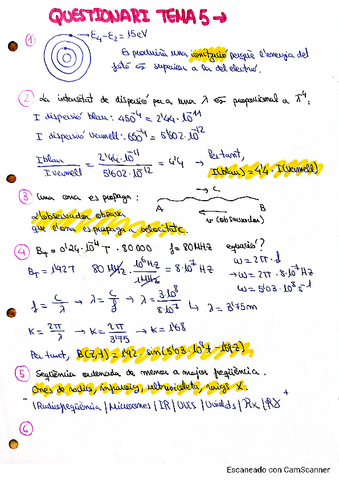 QÜESTIONARI TEMA 5 →
① → E4 - E2 = 15 eV
Es produirà una ionització perquè l'energia del
fotó és superior a la del electró.
② La intensitat de dispersió para una λ és proporcional a λ^-4:
I dispersió blau: 450^-4 = 2'44·10^-11
I dispersió vermell: 650^-4 = 5'602·10^-12
I blau / I vermell = 2'44·10^-11 / 5'602·10^-12 = 4'4 → Per tant,
I(blau) = 4'4 · I(vermell)
③ Una ona es propaga:
→ C
L'observador observa
A B
que l'ona es propaga a velocitat c.
← v (observador)
④ B_T = 0'24·10^-4 T · 80 000 f = 80 MHz equació?
B_T = 1'92 T 80 MHz · 10^6 Hz / 1 MHz = 8·10^7 Hz
ω = 2π · f
→ ω = 2π · 8·10^7 Hz
ω = 5'03·10^8 s^-1
f = C/λ → λ = C/f → λ = 3·10^8 / 8·10^7 → λ = 3'75 m
K = 2π/λ → K = 2π/3'75 → K = 1'68
Per tant,
⑤ Seqüència ordenada de menor a major freqüència.
Ones de radio, infraroig, ultravioleta, raigs X.
- +
| Radiofreqüència | Microones | IR | ULLS | UvioldS | RX | RX
⑥
Escaneado con CamScanner